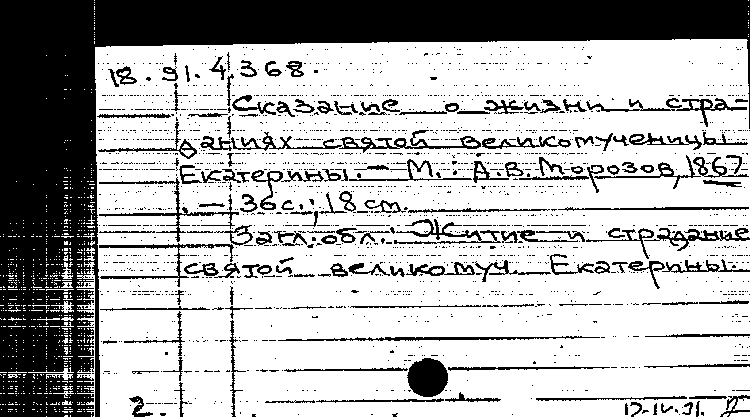 18.91.4.368.
Сказание о жизни и стра-
даниях святой великомученицы
Екатерины. — М.: А.В. Морозов, 1867
. — 36 с.; 18 cm.
Загл. обл.: Житие и страдание
святой великомуч. Екатерины.
2.